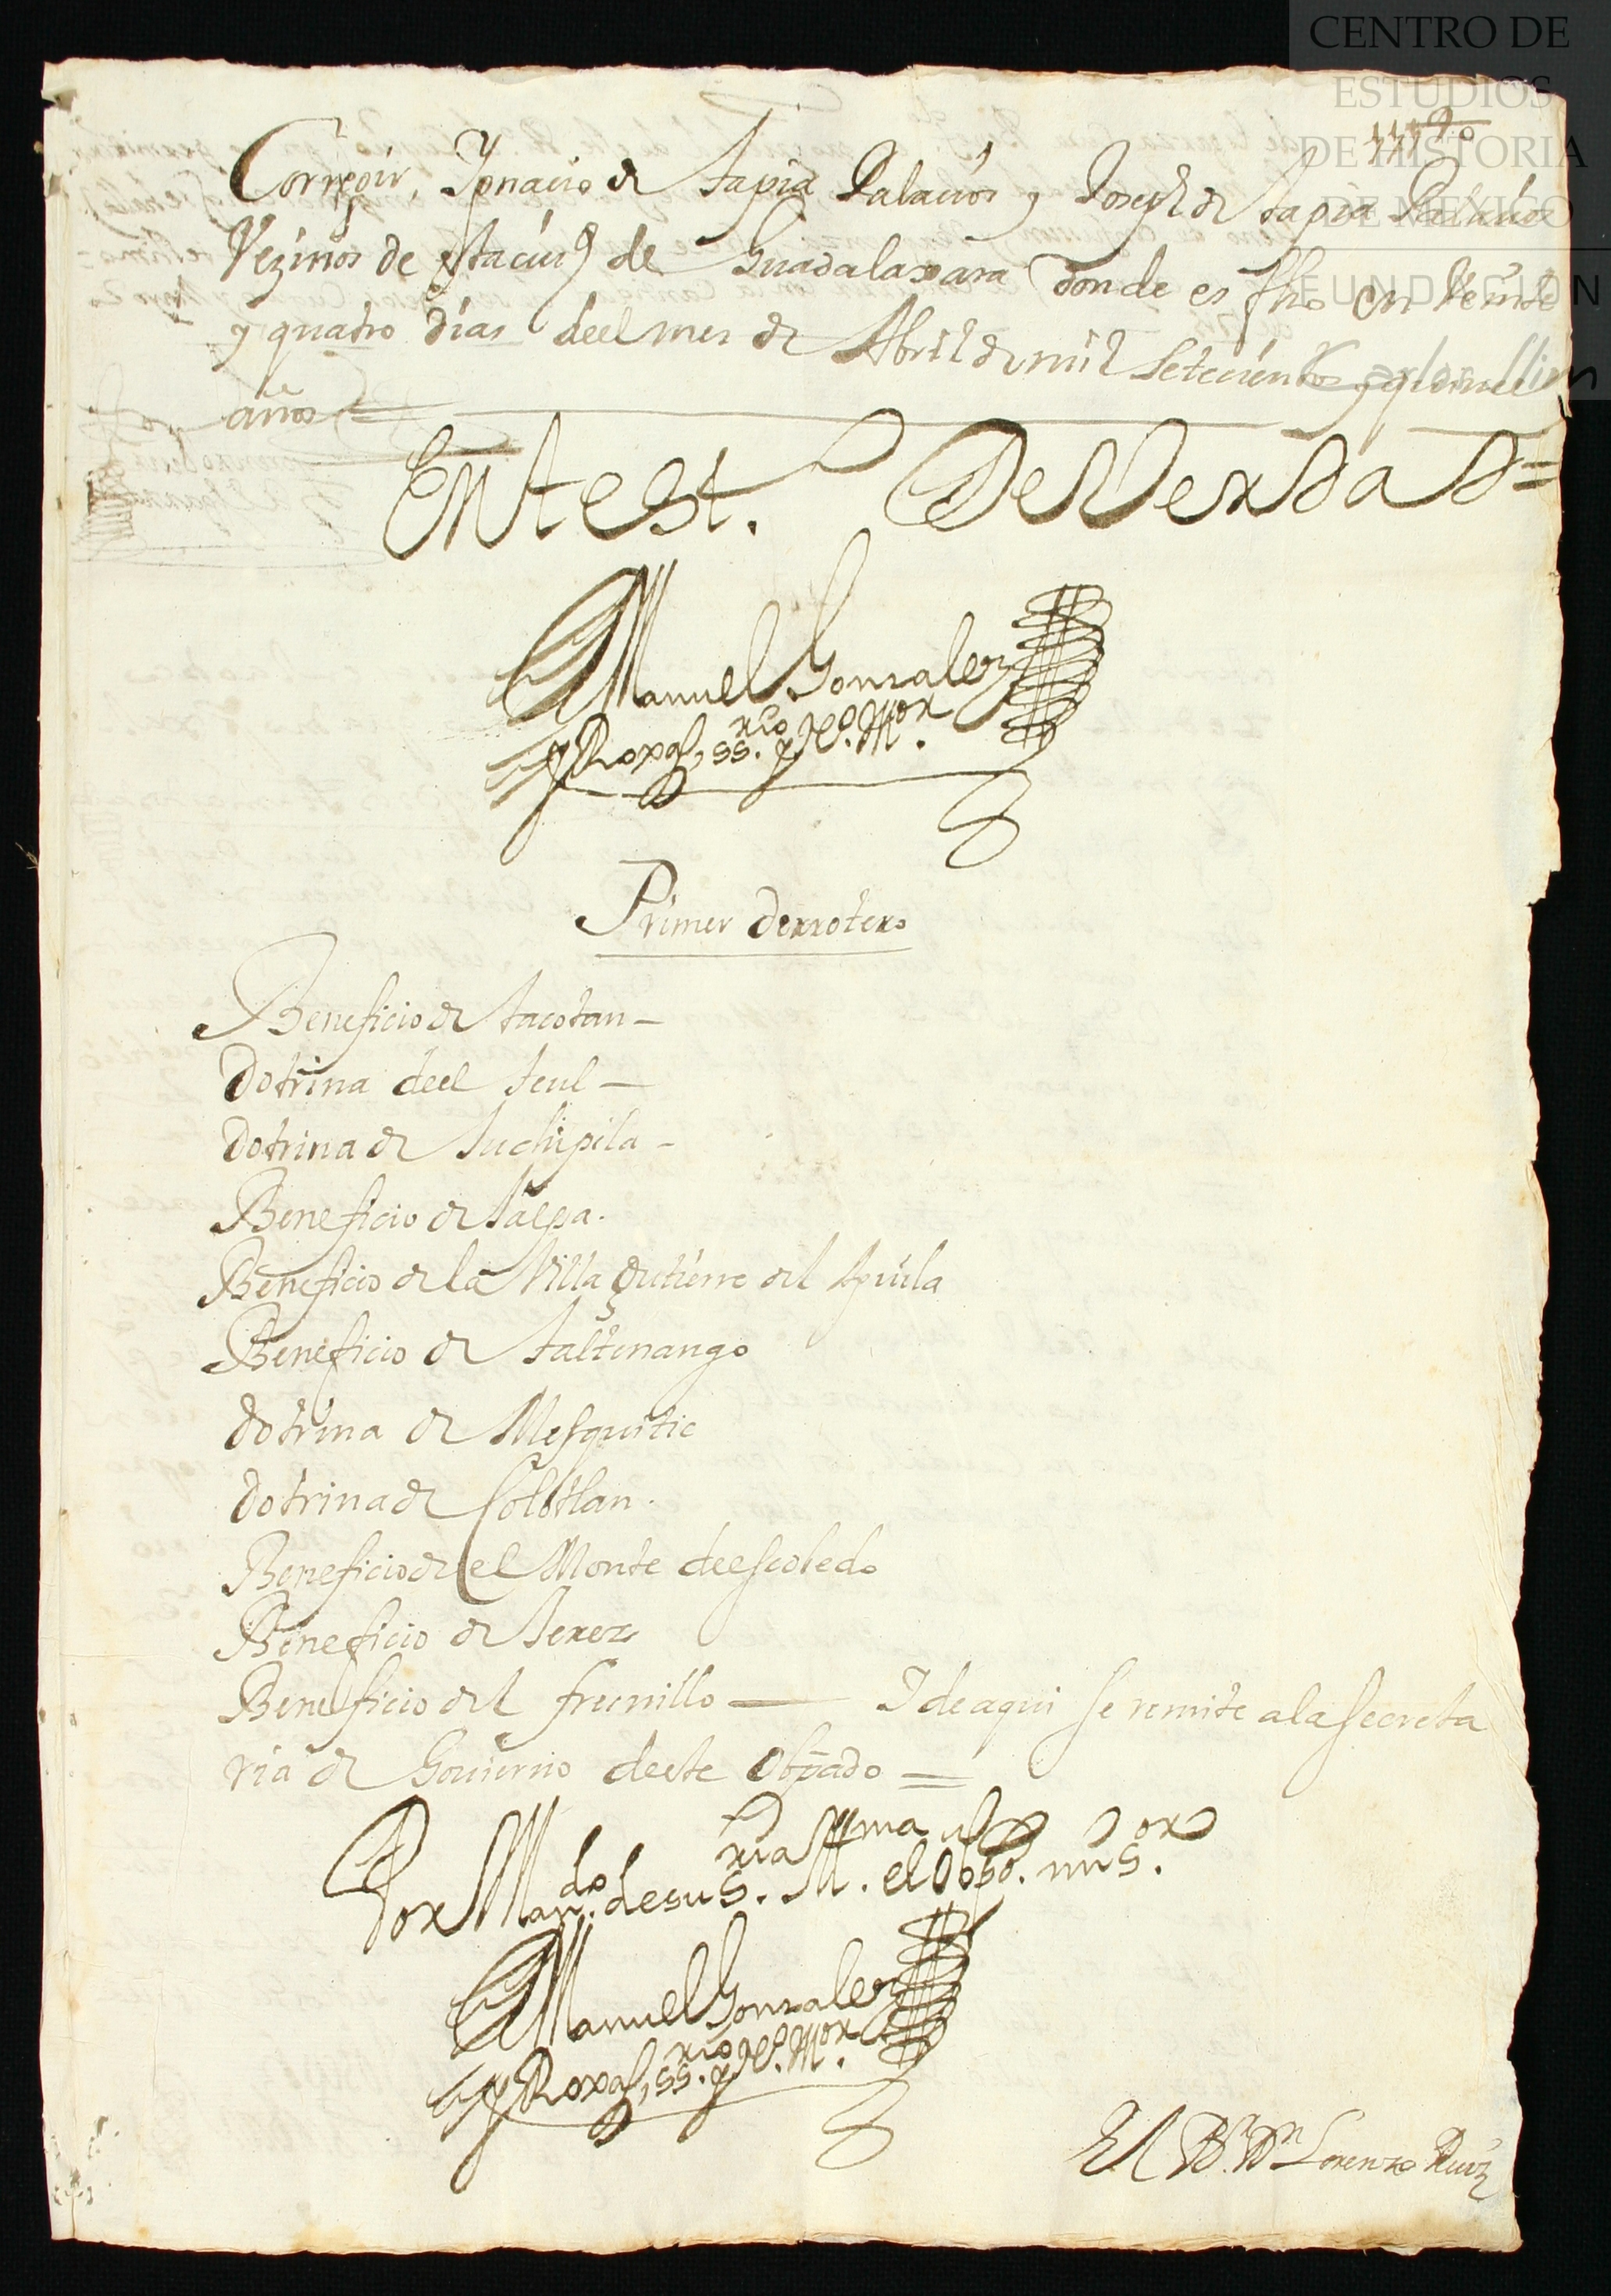 CENTRO DE
ESTUDIOS
DE HISTORIA
DE MEXICO
FUNDACIÓN
Corregir, Ygnacio de Tapia Palacios y Joseph de Tapia Palacios
Vezinos de estaciud de Guadalaxara donde es fho en veinte
y quatro dias deel mes de Abril de mil Setecientos y quinze
años =
En test. De Verdad =
Manuel Gonzalez
y Roxas, ss.rio y No. Mor.
Primer derrotero
Beneficio de tacotan –
Dotrina deel teul –
Dotrina de Juchipila –
Beneficio de Jalpa.
Beneficio de la Villa Gutierre del Aguila
Beneficio de Taltenango
dotrina de Mesquitic
dotrina de Colotlan.
Beneficio de el Monte deescobedo
Beneficio de Jerez
Beneficio del fresnillo — I de aqui se remite a la secreta
ria de Govierno deeste Obpado =
Por Mando. desu S.ria Ill.ma el Obpo. mi S.or
Manuel Gonzalez
y Roxas, ss.rio y No. Mor.
El Br. Dn Lorenzo Ruiz